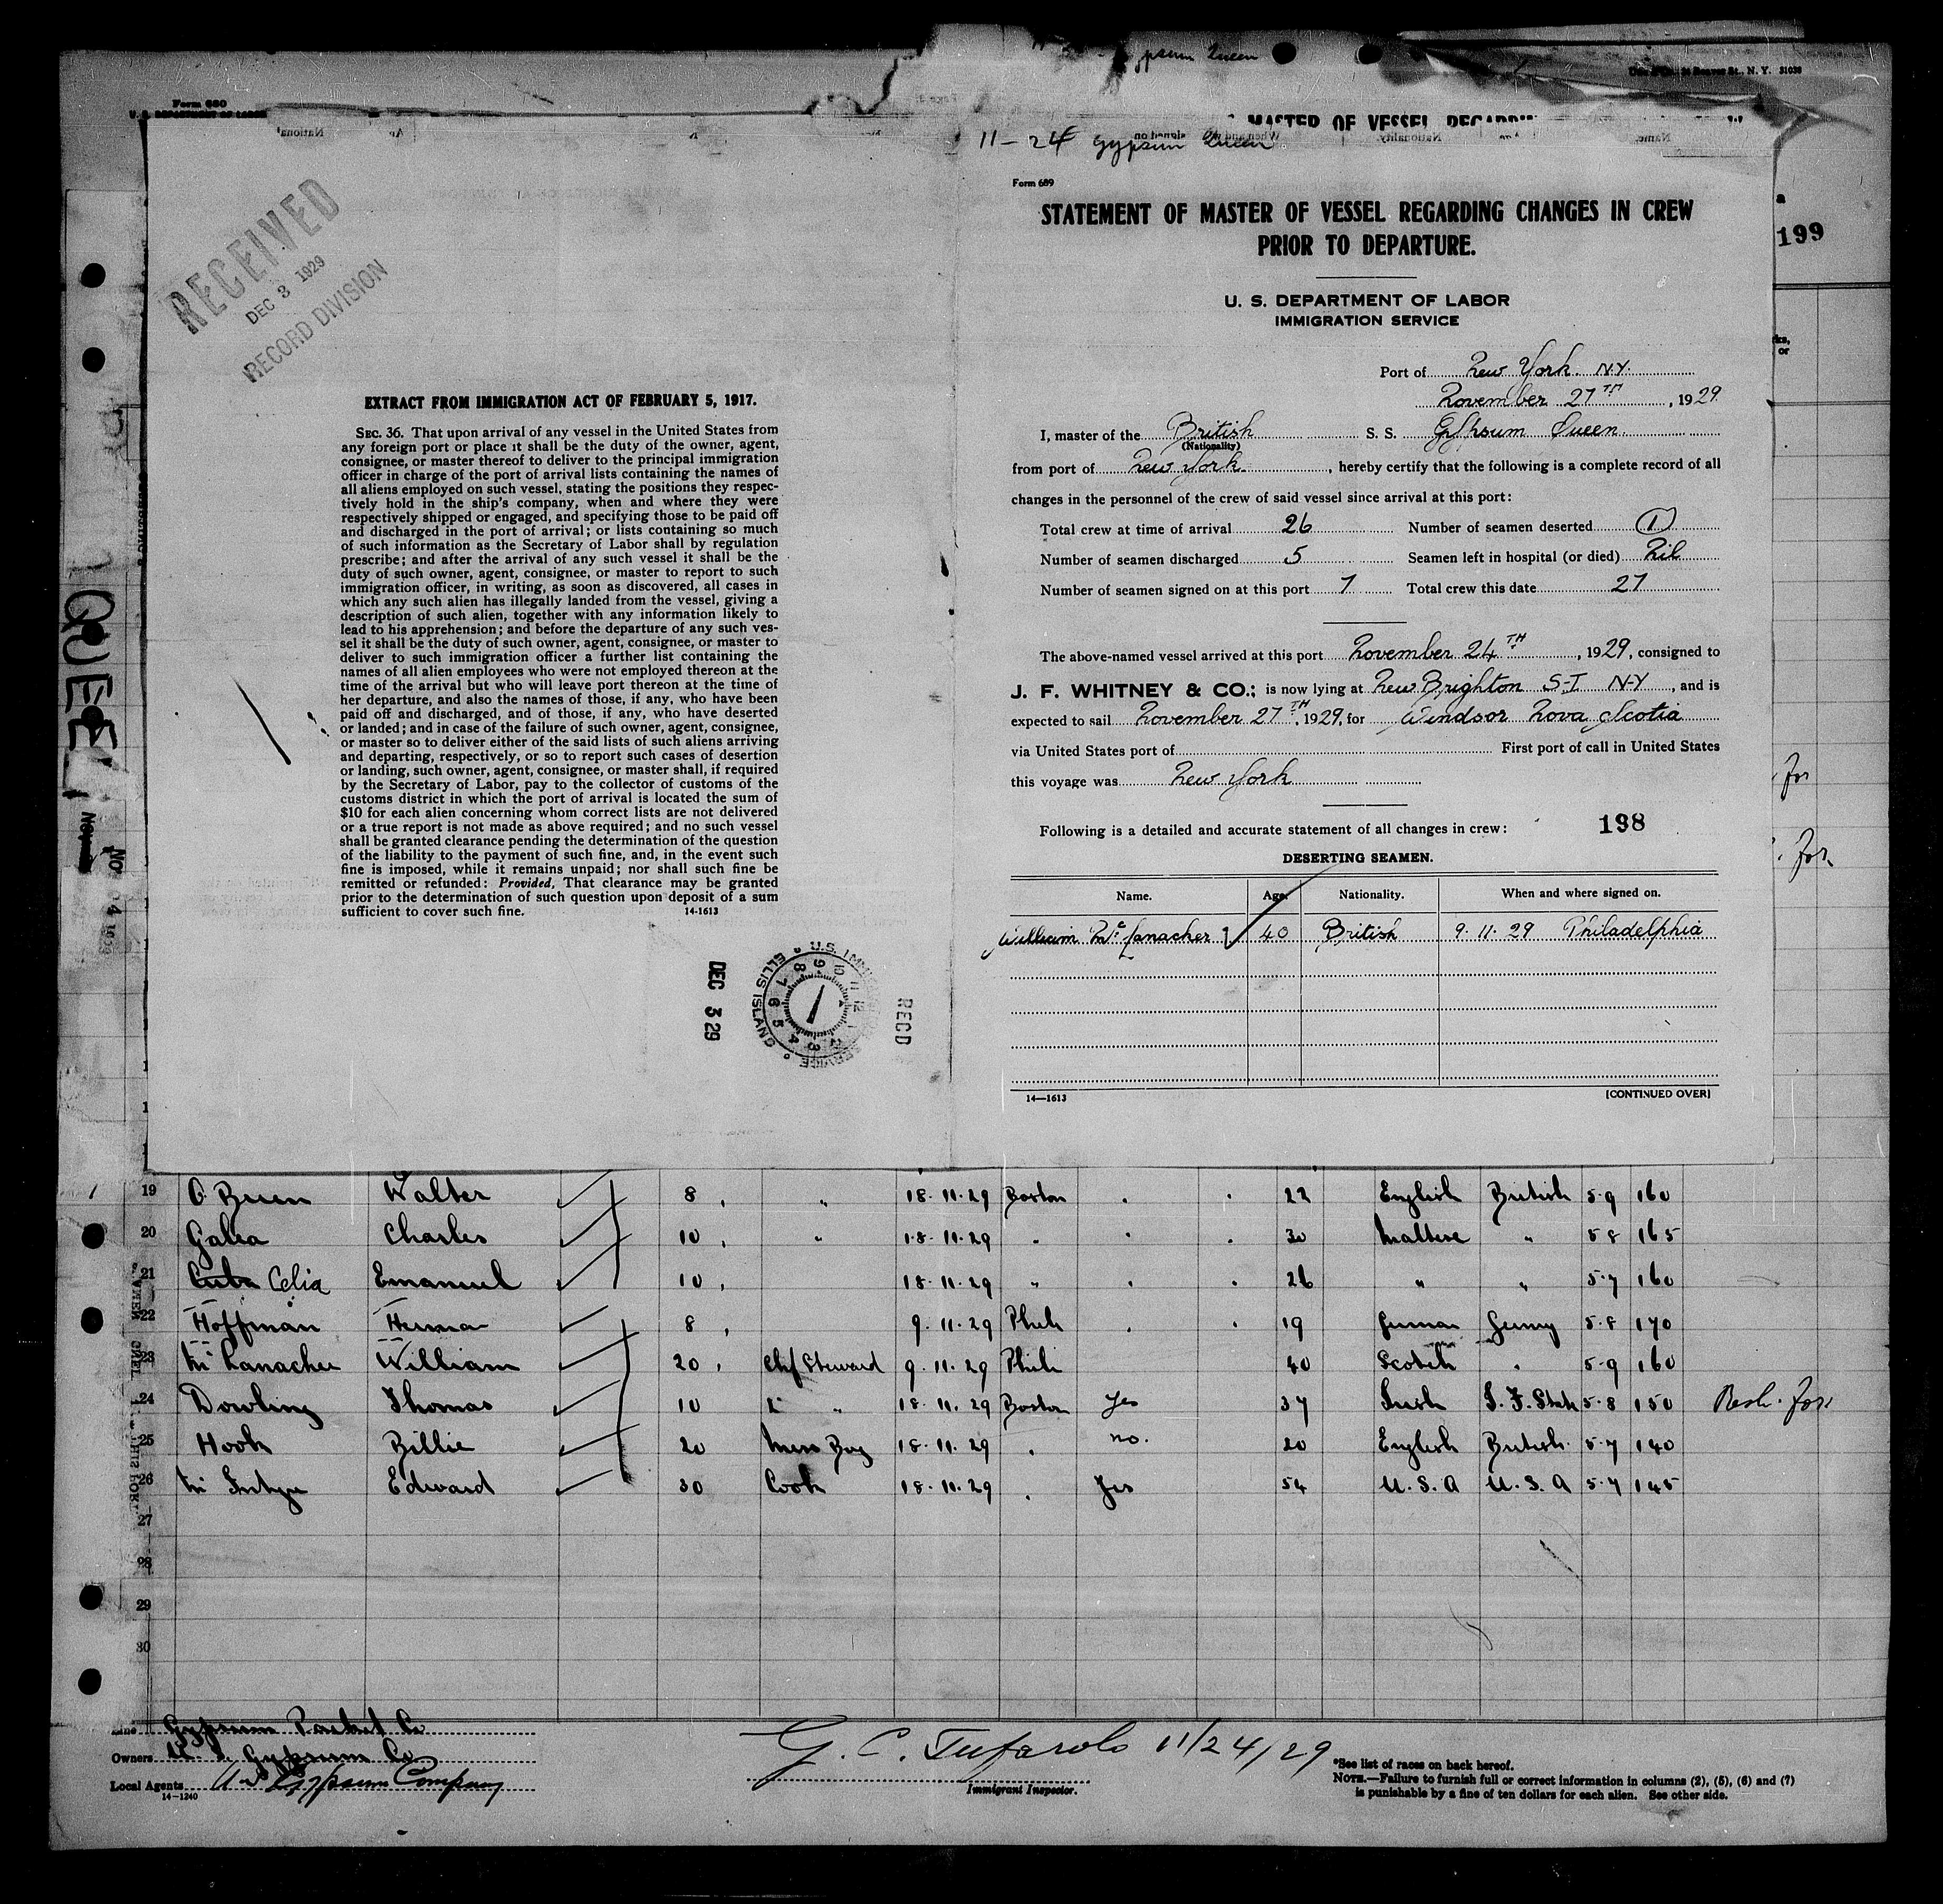 gypsum Queen
Beaver St., N. Y. 31038
Form 680
U. S. DEPARTMENT OF LABOR
MASTER OF VESSEL REGARDING
11-24 gypsum Queen
RECEIVED
DEC 3 1929
RECORD DIVISION
199
QUEEN
EXTRACT FROM IMMIGRATION ACT OF FEBRUARY 5, 1917.
SEC. 36. That upon arrival of any vessel in the United States from
any foreign port or place it shall be the duty of the owner, agent,
consignee, or master thereof to deliver to the principal immigration
officer in charge of the port of arrival lists containing the names of
all aliens employed on such vessel, stating the positions they respec-
tively hold in the ship's company, when and where they were
respectively shipped or engaged, and specifying those to be paid off
and discharged in the port of arrival; or lists containing so much
of such information as the Secretary of Labor shall by regulation
prescribe; and after the arrival of any such vessel it shall be the
duty of such owner, agent, consignee, or master to report to such
immigration officer, in writing, as soon as discovered, all cases in
which any such alien has illegally landed from the vessel, giving a
description of such alien, together with any information likely to
lead to his apprehension; and before the departure of any such ves-
sel it shall be the duty of such owner, agent, consignee, or master to
deliver to such immigration officer a further list containing the
names of all alien employees who were not employed thereon at the
time of the arrival but who will leave port thereon at the time of
her departure, and also the names of those, if any, who have been
paid off and discharged, and of those, if any, who have deserted
or landed; and in case of the failure of such owner, agent, consignee,
or master so to deliver either of the said lists of such aliens arriving
and departing, respectively, or so to report such cases of desertion
or landing, such owner, agent, consignee, or master shall, if required
by the Secretary of Labor, pay to the collector of customs of the
customs district in which the port of arrival is located the sum of
$10 for each alien concerning whom correct lists are not delivered
or a true report is not made as above required; and no such vessel
shall be granted clearance pending the determination of the question
of the liability to the payment of such fine, and, in the event such
fine is imposed, while it remains unpaid; nor shall such fine be
remitted or refunded: Provided, That clearance may be granted
prior to the determination of such question upon deposit of a sum
sufficient to cover such fine. 14-1613
DEC 3 29
U.S. IMMIGRATION SERVICE ELLIS ISLAND
RECD
Form 689
STATEMENT OF MASTER OF VESSEL REGARDING CHANGES IN CREW
PRIOR TO DEPARTURE.
U. S. DEPARTMENT OF LABOR
IMMIGRATION SERVICE
Port of New York. N.Y.
November 27TH, 1929
I, master of the British S. S. Gypsum Queen.
(Nationality)
from port of New York, hereby certify that the following is a complete record of all
changes in the personnel of the crew of said vessel since arrival at this port:
Total crew at time of arrival 26 Number of seamen deserted 1
Number of seamen discharged 5 Seamen left in hospital (or died) Nil
Number of seamen signed on at this port 7 Total crew this date 27
The above-named vessel arrived at this port November 24TH, 1929, consigned to
J. F. WHITNEY & CO.; is now lying at New Brighton S-I N-Y, and is
expected to sail November 27TH, 1929, for Windsor Nova Scotia
via United States port of First port of call in United States
this voyage was New York
Following is a detailed and accurate statement of all changes in crew: 198
DESERTING SEAMEN.
Name. Age. Nationality. When and where signed on.
William McLanacher 40 British 9.11.29 Philadelphia
14—1613 [CONTINUED OVER]
for
for
19 O Brien Walter 8 " 18.11.29 Boston 22 English British 5-9 160
20 Galea Charles 10 " 18.11.29 " 30 Maltese " 5-8 165
21 Celia Emanuel 10 18.11.29 " 26 " " 5-7 160
22 Hoffman Herman 8 9.11.29 Phila 19 German Germy 5-8 170
23 Mc Lanacher William 20 Chf Steward 9.11.29 Phila 40 Scotch " 5-9 160
24 Dowling Thomas 10 2 " 18.11.29 Boston Yes 37 Irish I. F. State 5-8 150 for
25 Hook Billie 20 Mess Boy 18.11.29 " no. 20 English British 5-7 140
26 Mc Intyre Edward 30 Cook 18.11.29 " Yes 54 U.S.A U.S.A 5-7 145
27
28
29
30
Line Gypsum Packet Co
Owners U. S. Gypsum Co
Local Agents U S Gypsum Company
14-1240
G. C. Tufarolo 11/24/29
Immigrant Inspector.
*See list of races on back hereof.
NOTE.—Failure to furnish full or correct information in columns (2), (5), (6) and (7)
is punishable by a fine of ten dollars for each alien. See other side.